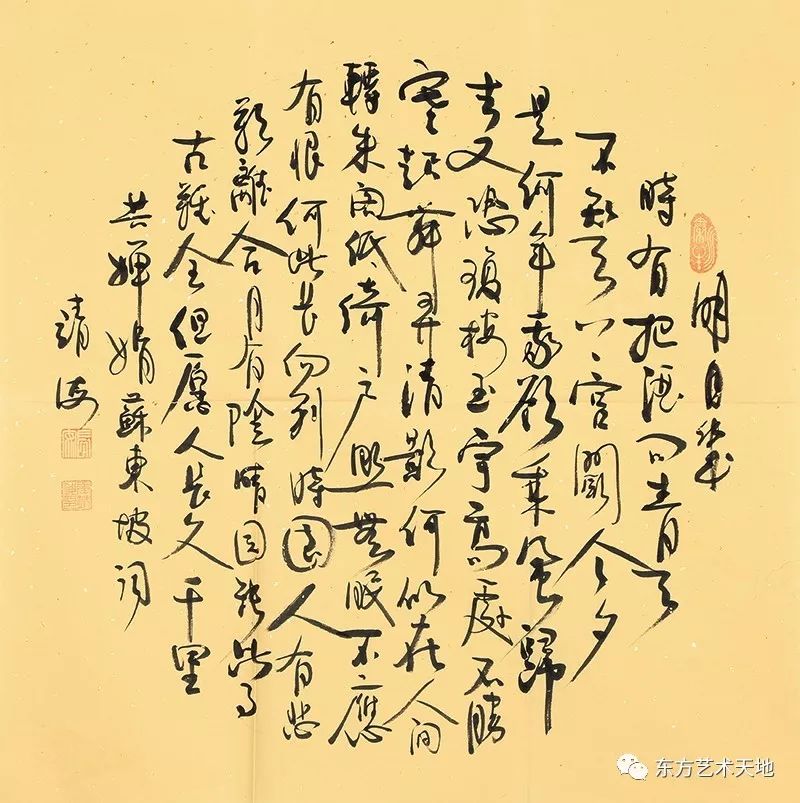 明月幾
時有把酒问青天
不知天上宫闕今夕
是何年我欲乘風歸
去又恐瓊樓玉宇高處不勝
寒起舞弄清影何似在人间
轉朱阁低绮户照無眠不應
有恨何此長向别時圆人有悲
歡離合月有陰晴圆缺此事
古難全但願人長久千里
共嬋娟蘇東坡詞
靖海
东方艺术天地